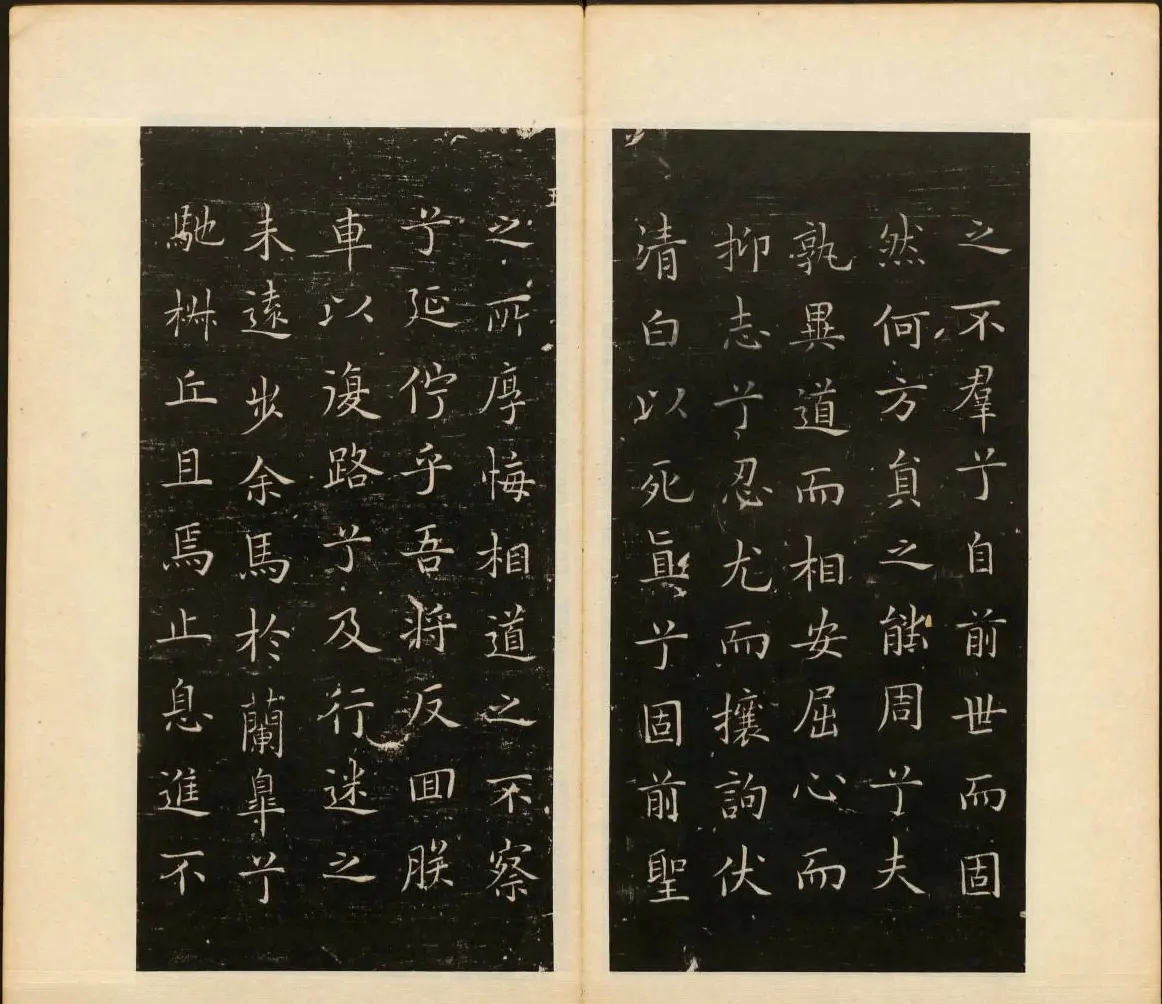 之不羣兮自前世而固
然何方員之能周兮夫
孰異道而相安屈心而
抑志兮忍尤而攘訽伏
清白以死眞兮固前聖
之所厚悔相道之不察
兮延佇乎吾將反囬朕
車以復路兮及行迷之
未遠步余馬於蘭臯兮
馳椒丘且焉止息進不